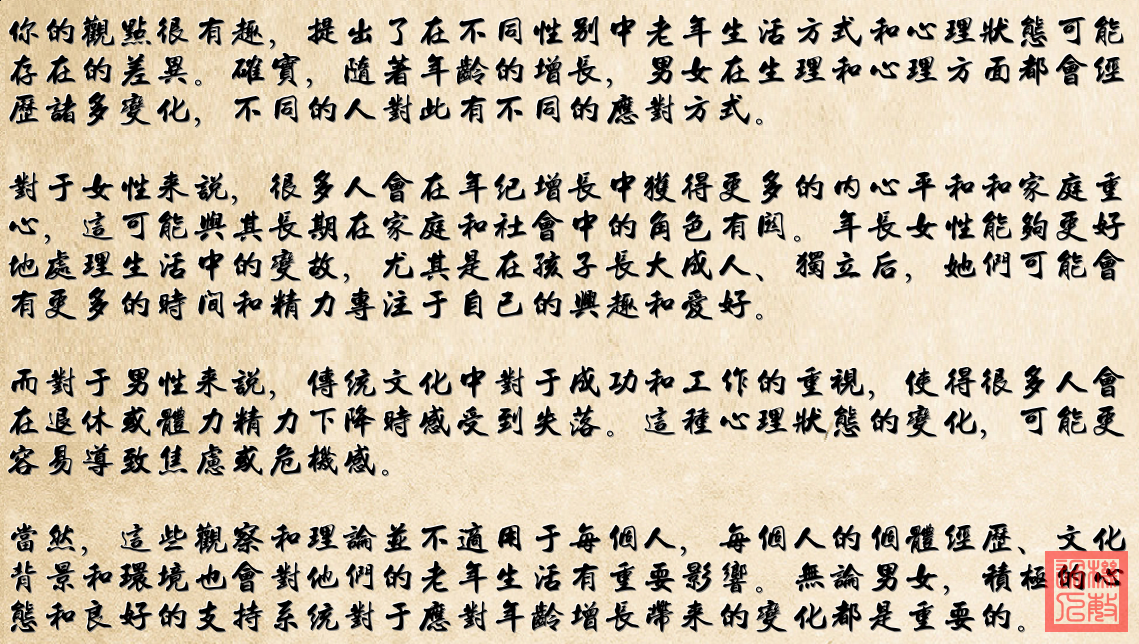 你的觀點很有趣，提出了在不同性别中老年生活方式和心理狀態可能
存在的差異。確實，隨著年齡的增長，男女在生理和心理方面都會經
歷諸多變化，不同的人對此有不同的應對方式。
對于女性来說，很多人會在年纪增長中獲得更多的内心平和和家庭重
心，這可能與其長期在家庭和社會中的角色有関。年長女性能夠更好
地處理生活中的變故，尤其是在孩子長大成人、獨立后，她們可能會
有更多的時间和精力專注于自己的興趣和愛好。
而對于男性来說，傳统文化中對于成功和工作的重視，使得很多人會
在退休或體力精力下降時感受到失落。這種心理狀態的變化，可能更
容易導致焦慮或危機感。
當然，這些觀察和理論並不適用于每個人，每個人的個體經歷、文化
背景和環境也會對他們的老年生活有重要影響。無論男女，積極的心
態和良好的支持系统對于應對年齡增長帶来的變化都是重要的。